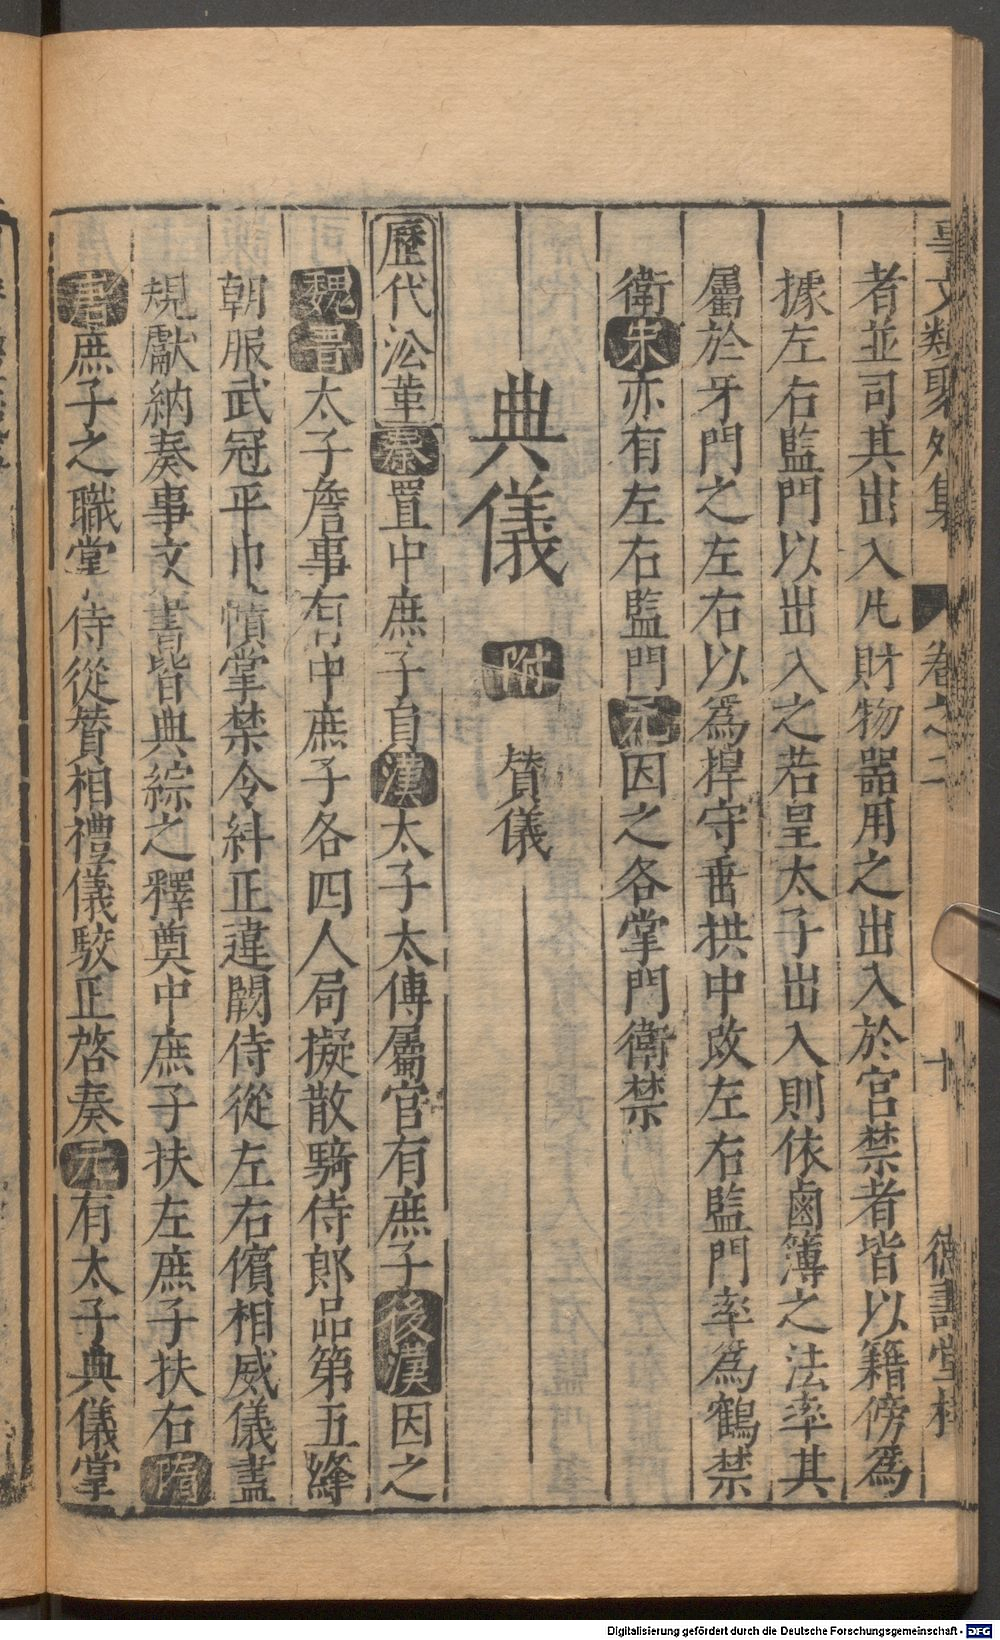 事文類聚外集 卷之二 十 德壽堂梓
者並司其出入凡財物器用之出入於宮禁者皆以籍傍爲
據左右監門以出入之若皇太子出入則依鹵簿之法率其
屬於牙門之左右以爲捍守垂拱中改左右監門率爲鶴禁
衛宋亦有左右監門元因之各掌門衛禁
典儀 附 賛儀
歷代㳂革秦置中庶子員漢太子太傅屬官有庶子後漢因之
魏晋太子詹事有中庶子各四人局擬散騎侍郎品第五絳
朝服武冠平巾幘掌禁令糾正違闕侍從左右儐相威儀盡
規獻納奏事文書皆典綜之釋奠中庶子扶左庶子扶右隋
唐庶子之職掌侍從賛相禮儀駮正啓奏元有太子典儀掌
Digitalisierung gefördert durch die Deutsche Forschungsgemeinschaft - DFG